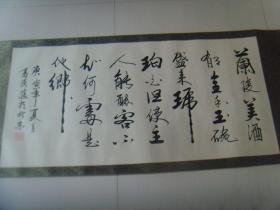 蘭陵美酒
郁金香玉碗
盛来琥
珀光但使主
人能醉客不
知何處是
他鄉
庚寅年夏月